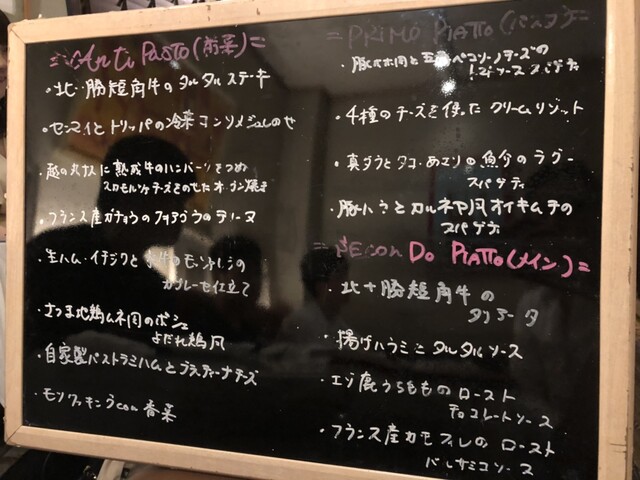 Anti Pasto(前菜)=
・北十勝短角牛のタルタルステーキ
・センマイとトリッパの冷菜コンソメジュレのせ
・越の丸ナスに熟成牛のハンバーグをつめ
スカモルツァチーズをのせたオーブン焼き
・フランス産ガチョウのフォアグラのテリーヌ
・生ハム・イチジクと水牛のモッツァレラの
カプレーゼ仕立て
・さつま地鶏ムネ肉のボシェ
よだれ鶏風
・自家製パストラミハムとブラティーナチーズ
・モツクッキング con 香菜
= PRiMO PiATTO(パスタ)=
・豚ホホ肉と ペコリーノチーズの
トマトソース スパゲティ
・4種のチーズを使った クリームリゾット
・真ダラとタコ・ホエビの魚介のラグー
スパゲティ
・豚ハラミとカルネヤ風オイキムチの
スパゲティ
= SEcon Do PiATTO(メイン)=
・北十勝短角牛の
タリアータ
・揚げハラミニ タルタルソース
・エゾ鹿うちもものロースト
チョコレートソース
・フランス産カモフィレのロースト
バルサミコソース